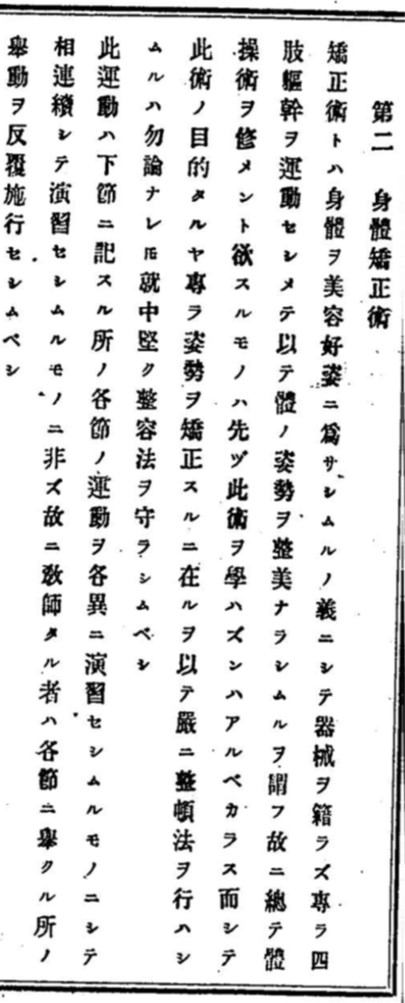 第二　身體矯正術
矯正術トハ身體ヲ美容好姿ニ爲サシムルノ義ニシテ器械ヲ籍ラズ專ラ四
肢軀幹ヲ運動セシメテ以テ體ノ姿勢ヲ整美ナラシムルヲ謂フ故ニ總テ體
操術ヲ修メント欲スルモノハ先ヅ此術ヲ學ハズンハアルベカラス而シテ
此術ノ目的タルヤ專ラ姿勢ヲ矯正スルニ在ルヲ以テ嚴ニ整頓法ヲ行ハシ
ムルハ勿論ナレ𪜈就中堅ク整容法ヲ守ラシムベシ
此運動ハ下節ニ記スル所ノ各節ノ運動ヲ各異ニ演習セシムルモノニシテ
相連續シテ演習セシムルモノニ非ズ故ニ敎師タル者ハ各節ニ舉クル所ノ
舉動ヲ反覆施行セシムベシ